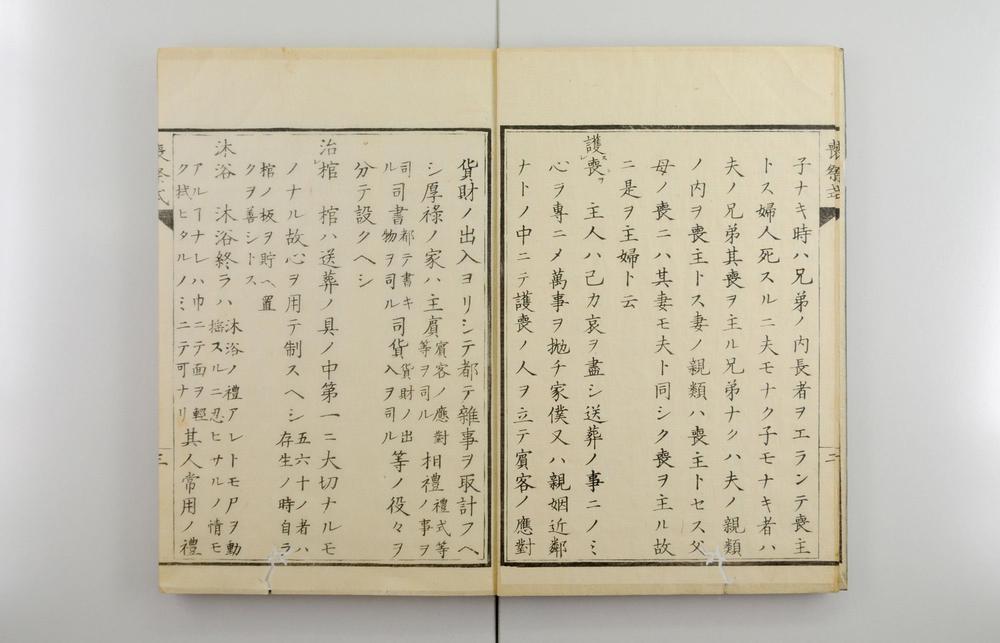 子ナキ時ハ兄弟ノ内長者ヲエランテ喪主
トス婦人死スルニ夫モナク子モナキ者ハ
夫ノ兄弟其喪ヲ主ル兄弟ナクハ夫ノ親類
ノ内ヲ喪主トス妻ノ親類ハ喪主トセス父
母ノ喪ニハ其妻モ夫ト同シク喪ヲ主ル故
ニ是ヲ主婦ト云
護喪 主人ハ己カ哀ヲ盡シ送葬ノ事ニノミ
心ヲ專ニメ萬事ヲ抛チ家僕又ハ親姻近鄰
ナトノ中ニテ護喪ノ人ヲ立テ賓客ノ應對
貨財ノ出入ヨリシテ都テ雜事ヲ取計フヘ
シ厚祿ノ家ハ主賓賓客ノ應對等ヲ司ル相禮禮式等ノ事ヲ
司ル司書都テ書キ物ヲ司ル司貨貨財ノ出入ヲ司ル等ノ役々ヲ
分テ設クヘシ
治棺 棺ハ送葬ノ具ノ中第一ニ大切ナルモ
ノナル故心ヲ用テ制スヘシ五六十ノ者ハ存生ノ時自ラ
棺ノ板ヲ貯ヘ置クヲ善シトス
沐浴 沐浴終ラハ沐浴ノ禮アレトモ尸ヲ動揺スルニ忍ヒサルノ情モ
アルヿナレハ巾ニテ面ヲ輕ク拭ヒタルノミニテ可ナリ其人常用ノ禮